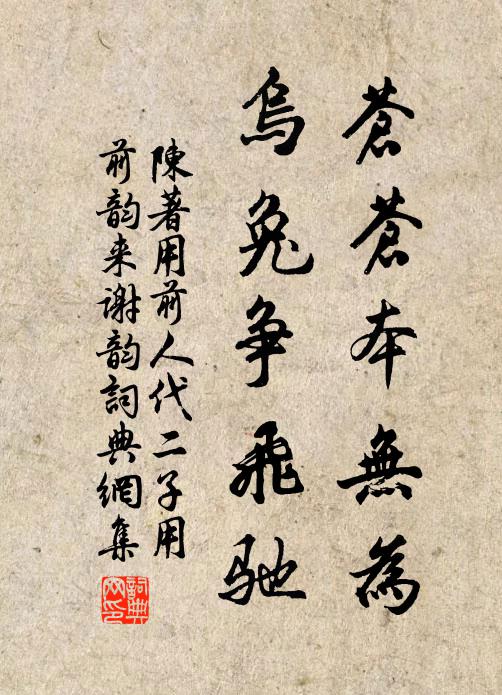 蒼蒼本無為
烏兔爭飛馳
陳著用前人代二子用
前韵来谢韵詞典網集
詞典網印